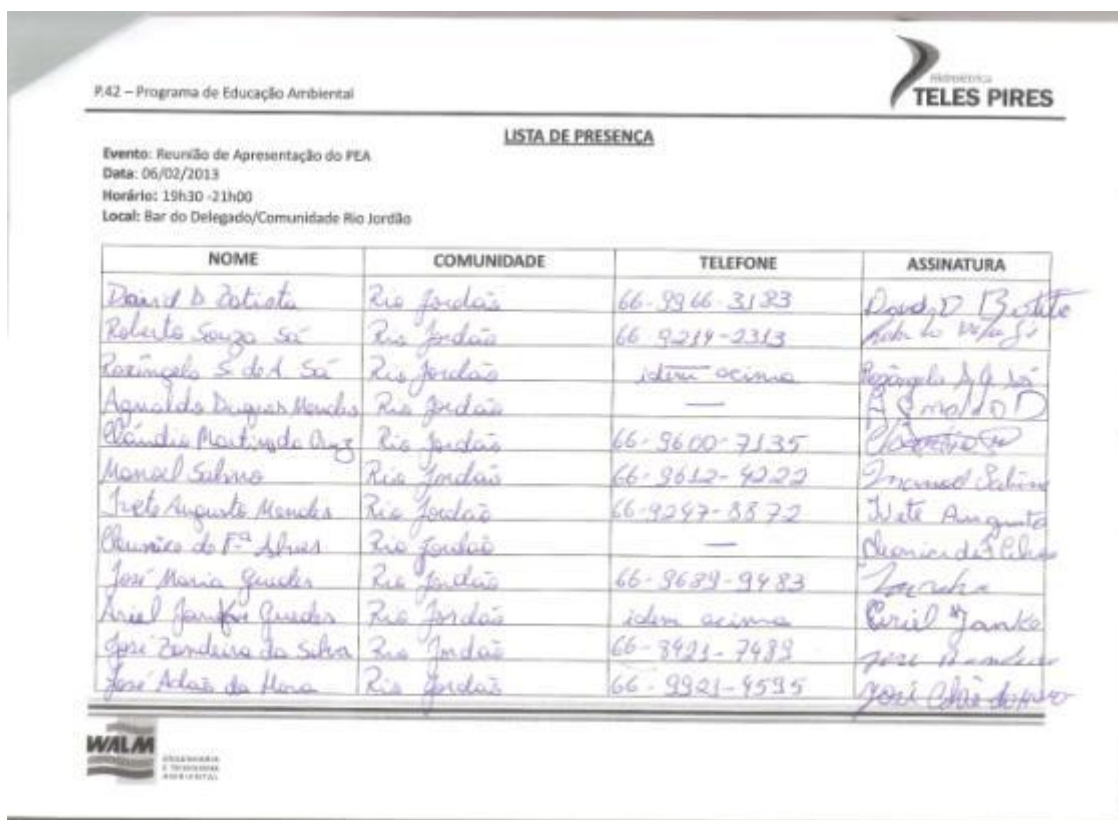 P.42 – Programa de Educação Ambiental
Hidrelétrica
TELES PIRES
LISTA DE PRESENÇA
Evento: Reunião de Apresentação do PEA
Data: 06/02/2013
Horário: 19h30 -21h00
Local: Bar do Delegado/Comunidade Rio Jordão
NOME COMUNIDADE TELEFONE ASSINATURA
David D Batista Rio Jordão 66-9966-3183 David D
Roberto Souza Sá Rio Jordão 66 9214-2313
Rozângela S de A Sá Rio Jordão idem acima Rozângela S A Sá
Agnaldo Mendes Rio Jordão —
Cláudio Martins da Cruz Rio Jordão 66-9600-7135
Manoel Rio Jordão 66-9612-4222
Ivete Augusto Mendes Rio Jordão 66-9247-8872 Ivete Augusto
Cleunice de Fª Alves Rio Jordão —
José Maria Guedes Rio Jordão 66-9689-9483
Ariel Guedes Rio Jordão idem acima
José Bandeira da Silva Rio Jordão José
José Adão da Rio Jordão 66-9921-4595 José
WALM
ENGENHARIA
E TECNOLOGIA
AMBIENTAL